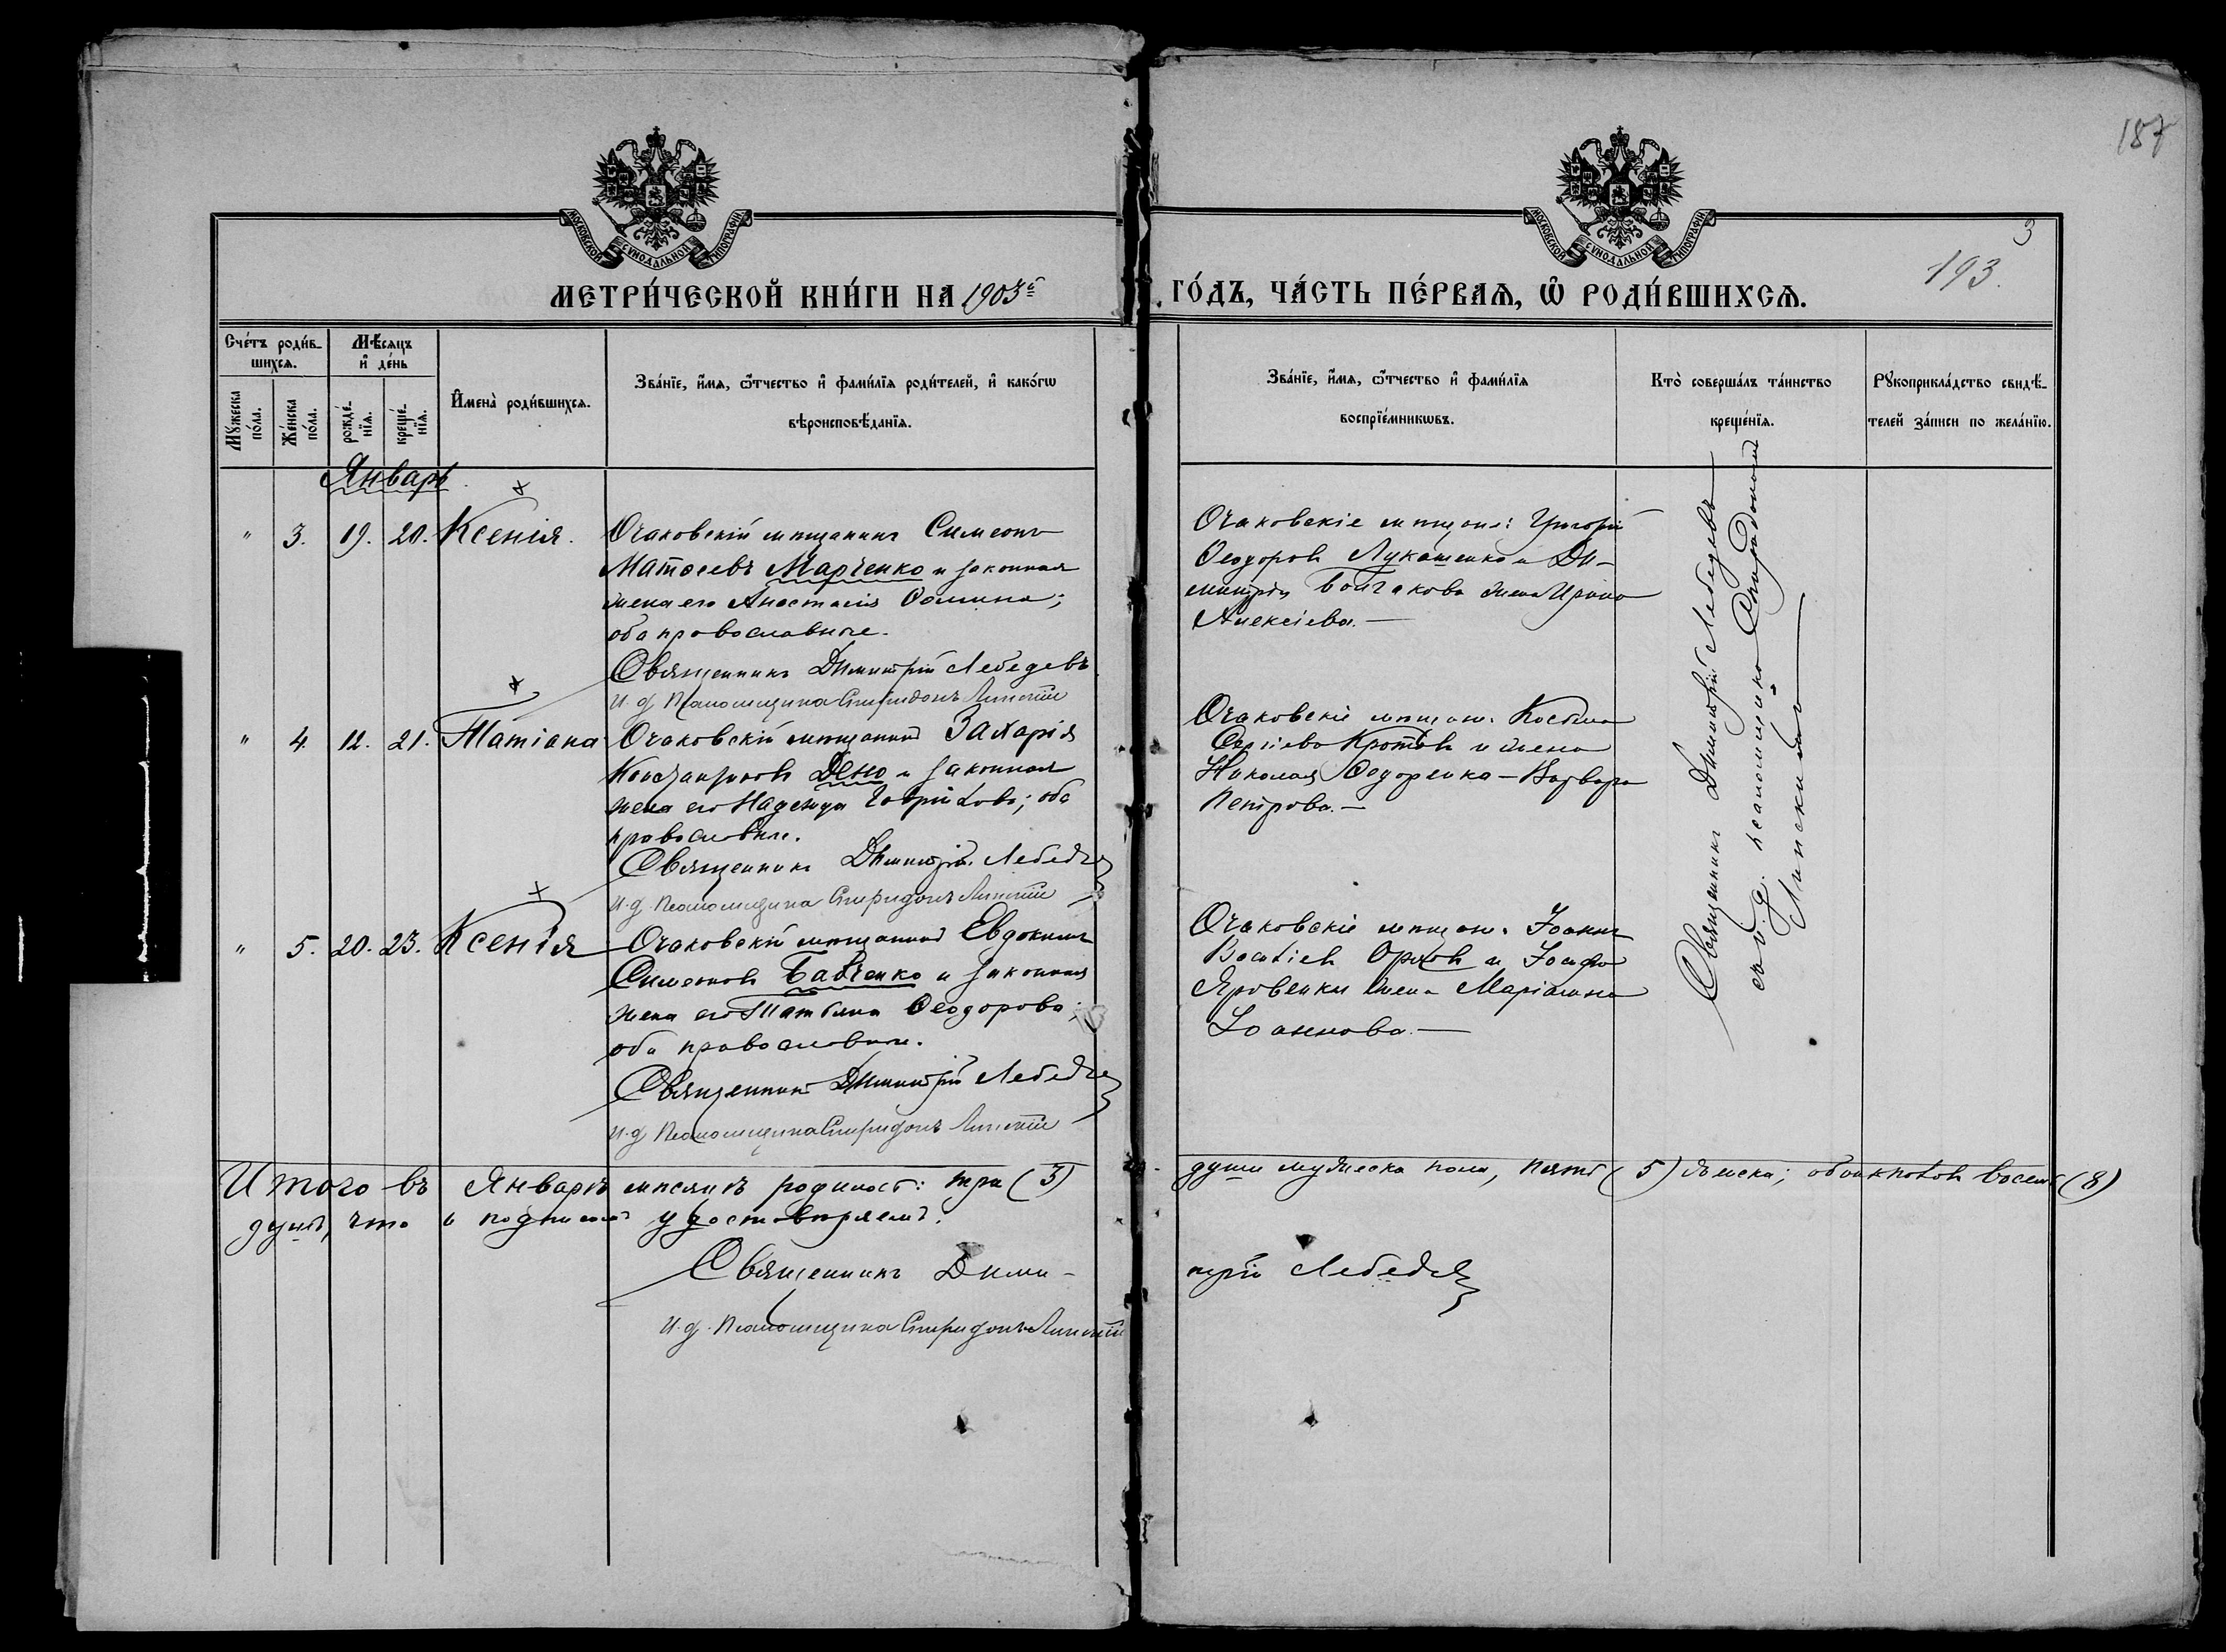 187
3
193.
МОСКОВСКОЙ СѴНОДАЛЬНОЙ ТИПОГРАФІИ
МОСКОВСКОЙ СѴНОДАЛЬНОЙ ТИПОГРАФІИ
МЕТРИ́ЧЕСКОЙ КНИ́ГИ НА 1903й
ГО́ДЪ, ЧА́СТЬ ПЕ́РВАѦ, Ѡ҆ РОДИ́ВШИХСѦ.
Сче́тъ роди́в-
шихсѧ.
Мꙋ́жеска по́ла.
Же́нска по́ла.
Мѣ́сѧцъ
и҆ де́нь
рожде́-нїѧ.
креще́-нїѧ.
И҆мена̀ роди́вшихсѧ.
Зва́нїе, и҆́мѧ, ѻ҆́тчество и҆ фами́лїѧ роди́телей, и҆ како́гѡ
вѣроисповѣ́данїѧ.
Зва́нїе, и҆́мѧ, ѻ҆́тчество и҆ фами́лїѧ
воспрїе́мникѡвъ.
Кто̀ соверша́лъ та́инство
креще́нїѧ.
Рꙋкоприкла́дство свидѣ́-
телей за́писи по жела́нїю.
Январь
" 3. 19. 20. Ксенія.
Очаковскій мѣщанинъ Симеонъ
Матѳеевъ Марченко и законная
жена его Анастасія Ѳомина;
оба православные.
Священникъ Димитрій Лебедевъ
И. д. Псаломщика Спиридонъ Липскій
Очаковскіе мѣщане: Григорій
Ѳеодоровъ Лукашенко и Ди-
митрія жена Ирина
Алексіева. —
" 4. 12. 21. Татіана
Очаковскій мѣщанинъ Захарія
Дено и законная
жена его Надежда Гавріилова; оба
православные.
Священникъ Димитрій Лебедевъ
И. д. Псаломщика Спиридонъ Липскій
Очаковскіе мѣщан. Косьма
Сергіевъ Кротовъ и жена
Николая Ѳедоренко — Варвара
Петрова. —
" 5. 20. 23. Ксенія
Очаковскій мѣщанинъ Евдокимъ
Симеоновъ Бабченко и законная
жена его Татьяна Ѳеодорова;
оба православные.
Священникъ Димитрій Лебедевъ
И. д. Псаломщика Спиридонъ Липскій
Очаковскіе мѣщан. Іоаннъ
Орловъ и Іосифа
Яровенки жена Маріамна
Іоаннова. —
Священникъ Димитрій Лебедевъ
съ и. д. псаломщика Спиридономъ
Липскимъ
Итого въ Январѣ мѣсяцѣ родилось: три (3)
души мужеска пола, пять (5) женска; обоихъ половъ восемь (8)
душъ, что и подписомъ удостовѣряемъ.
Священникъ Дими-
трій Лебедевъ
И. д. Псаломщика Спиридонъ Липскій